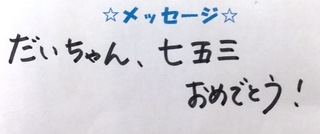 ☆メッセージ☆
だいちゃん、七五三
おめでとう!